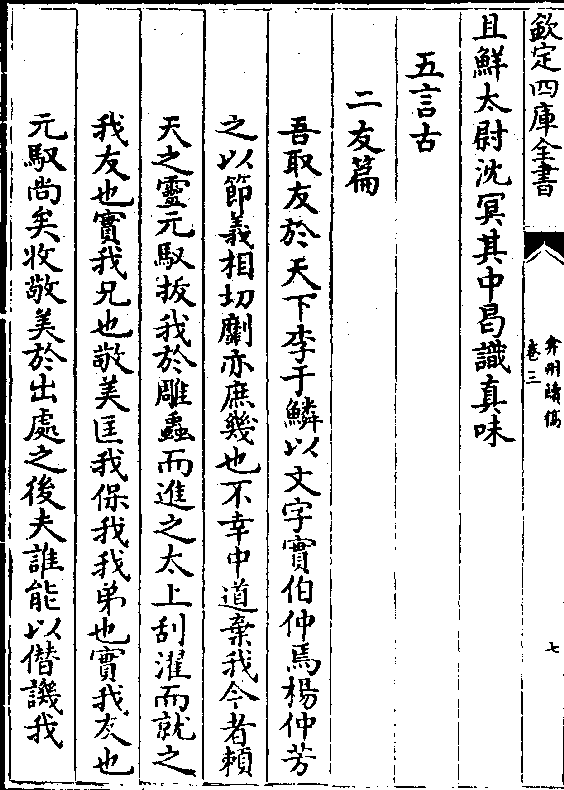 欽定四庫全書
弇州續稿
卷三
七
且鮮太尉沈冥其中曷識真味
五言古
二友篇
吾取友於天下李于鱗以文字實伯仲焉楊仲芳
之以節義相切劘亦庶幾也不幸中道棄我今者賴
天之靈元馭拔我於雕蟲而進之太上刮濯而就之
我友也實我兄也敬美匡我保我我弟也實我友也
元馭尚矣收敬美於出處之後夫誰能以僭譏我